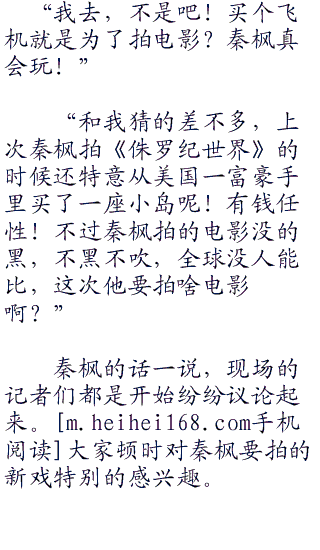 “我去，不是吧！买个飞
机就是为了拍电影？秦枫真
会玩！”
“和我猜的差不多，上
次秦枫拍《侏罗纪世界》的
时候还特意从美国一富豪手
里买了一座小岛呢！有钱任
性！不过秦枫拍的电影没的
黑，不黑不吹，全球没人能
比，这次他要拍啥电影
啊？”
秦枫的话一说，现场的
记者们都是开始纷纷议论起
来。[m.heihei168.com手机
阅读]大家顿时对秦枫要拍的
新戏特别的感兴趣。